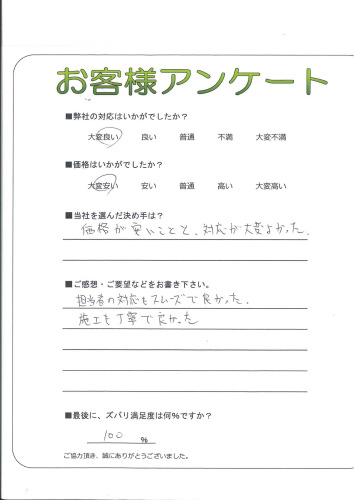 お客様アンケート
■弊社の対応はいかがでしたか？
大変良い 良い 普通 不満 大変不満
■価格はいかがでしたか？
大変安い 安い 普通 高い 大変高い
■当社を選んだ決め手は？
価格が安いことと、対応が大変よかった。
■ご感想・ご要望などをお書き下さい。
担当者の対応もスムーズで良かった。
施工も丁寧で良かった
■最後に、ズバリ満足度は何%ですか？
100 %
ご協力頂き、誠にありがとうございました。